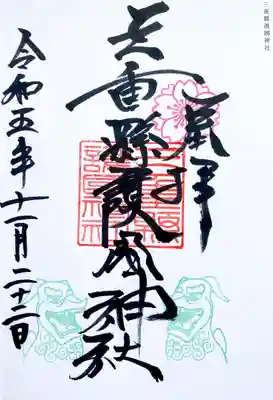 三重縣護國神社
奉拝
三重縣護國神社
令和五年十一月二十二日